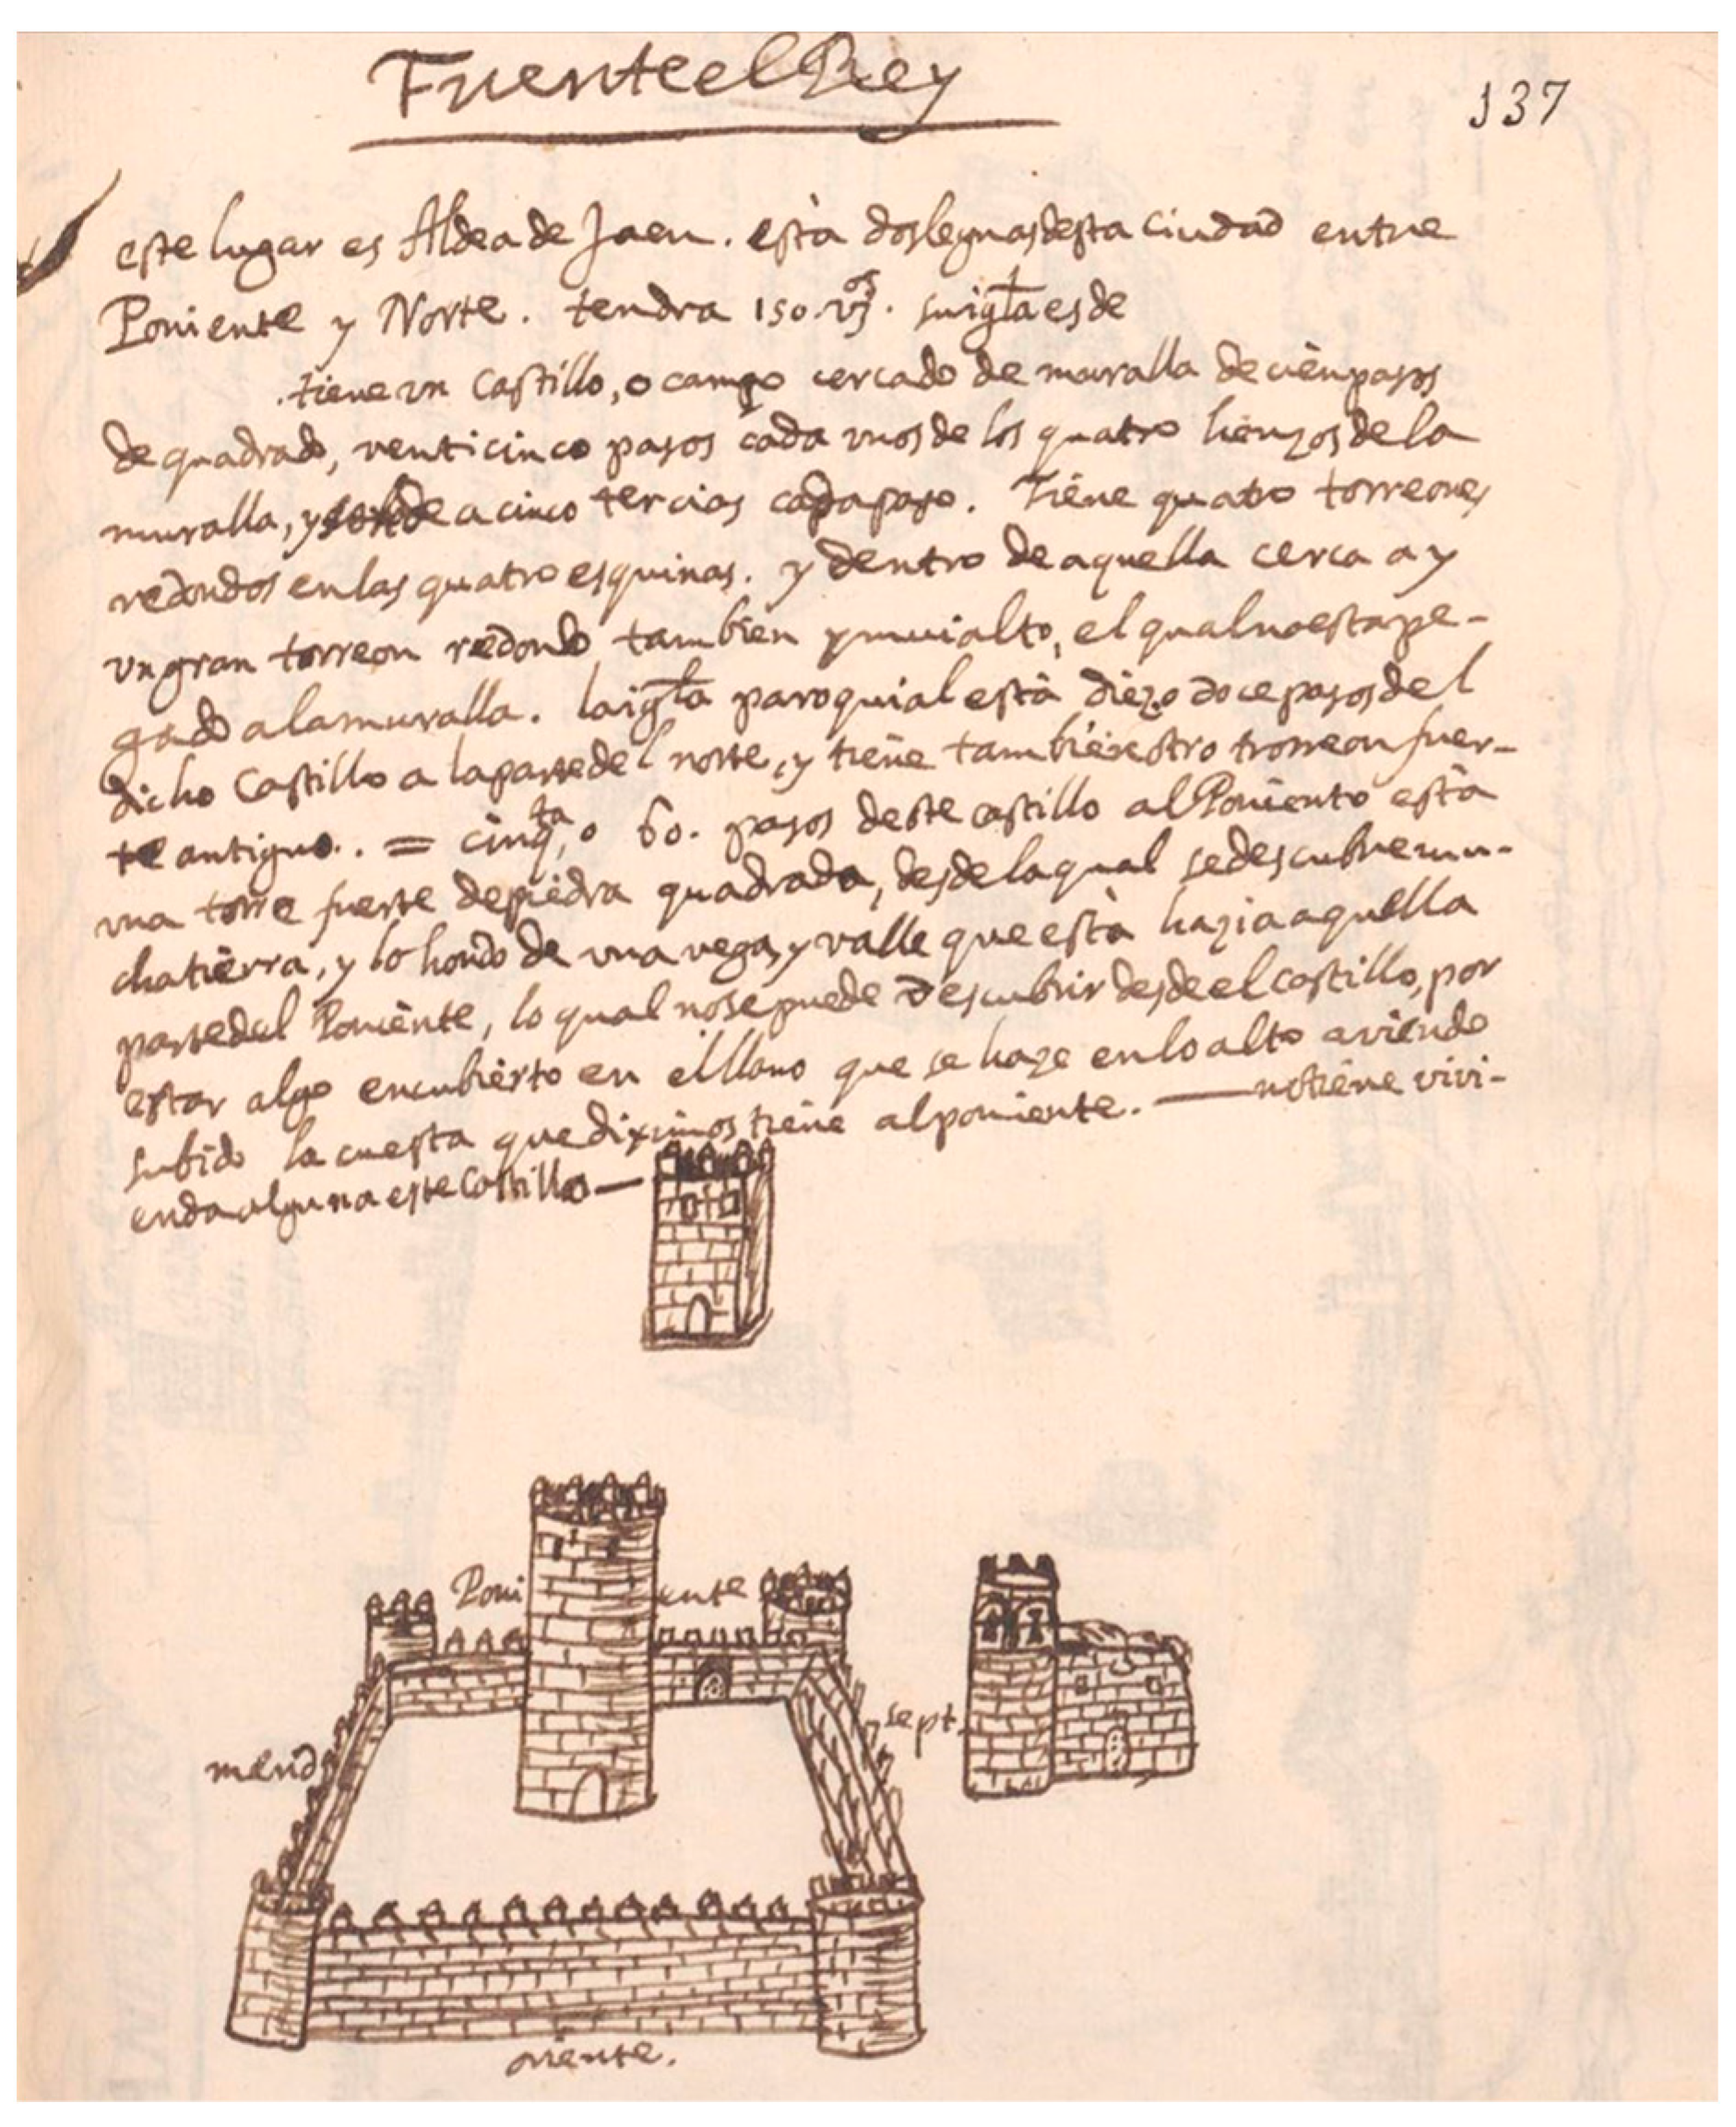 Fuente el Rey
137
este lugar es Aldea de Jaen. està dos leguas desta ciudad entre
Poniente y Norte. tendra 150 vos. su iglа es de
tiene vn Castillo, o campo cercado de muralla de cien pasos
de quadrado, venticinco pasos cada vnos de los quatro lienzos de la
muralla, y a cinco tercias cada paso. Tiene quatro torreones
redondos en las quatro esquinas. y dentro de aquella cerca ay
vn gran torreon redondo tambien y mui alto, el qual no esta pe-
gado a la muralla. la igla paroquial està diez o doce pasos del
dicho Castillo a la parte del norte, y tiene tambien otro torreon fuer-
te antiguo. = cinqta, o 60. pasos deste castillo al Poniente està
vna torre fuerte de piedra quadrada, desde la qual se descubre mu-
cha tierra, y lo hondo de vna vega, y valle que està hazia aquella
parte del Poniente, lo qual no se puede descubrir desde el castillo, por
estar algo encubierto en el llano que se haze en lo alto aviendo
subido la cuesta que diximos tiene al poniente. — no tiene vivi-
enda alguna este Castillo —
Poniente
sept.
merid
oriente.